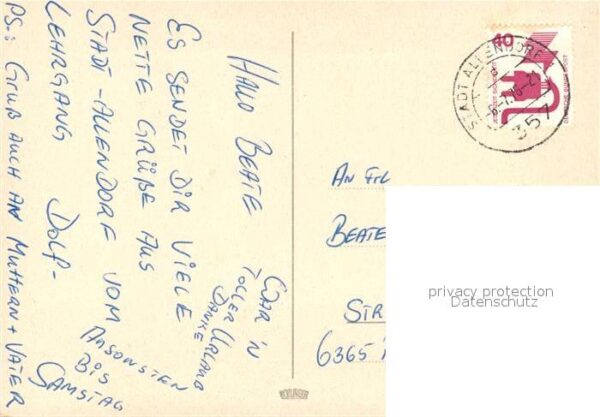 HALLO BEATE
ES SENDET DIR VIELE
NETTE GRÜßE AUS
STADT-ALLENDORF VOM
LEHRGANG DOLF-
WAR 'N
TOLLER URLAUB
DANKE
ANSONSTEN
BIS
SAMSTAG
PS.: GRUß AUCH AN MUTTERN + VATER
40
JEDERZEIT SICHERHEIT
DEUTSCHE BUNDESPOST
STADT ALLENDORF
357
AN FRL
BEATE
STR
6365
privacy protection
Datenschutz